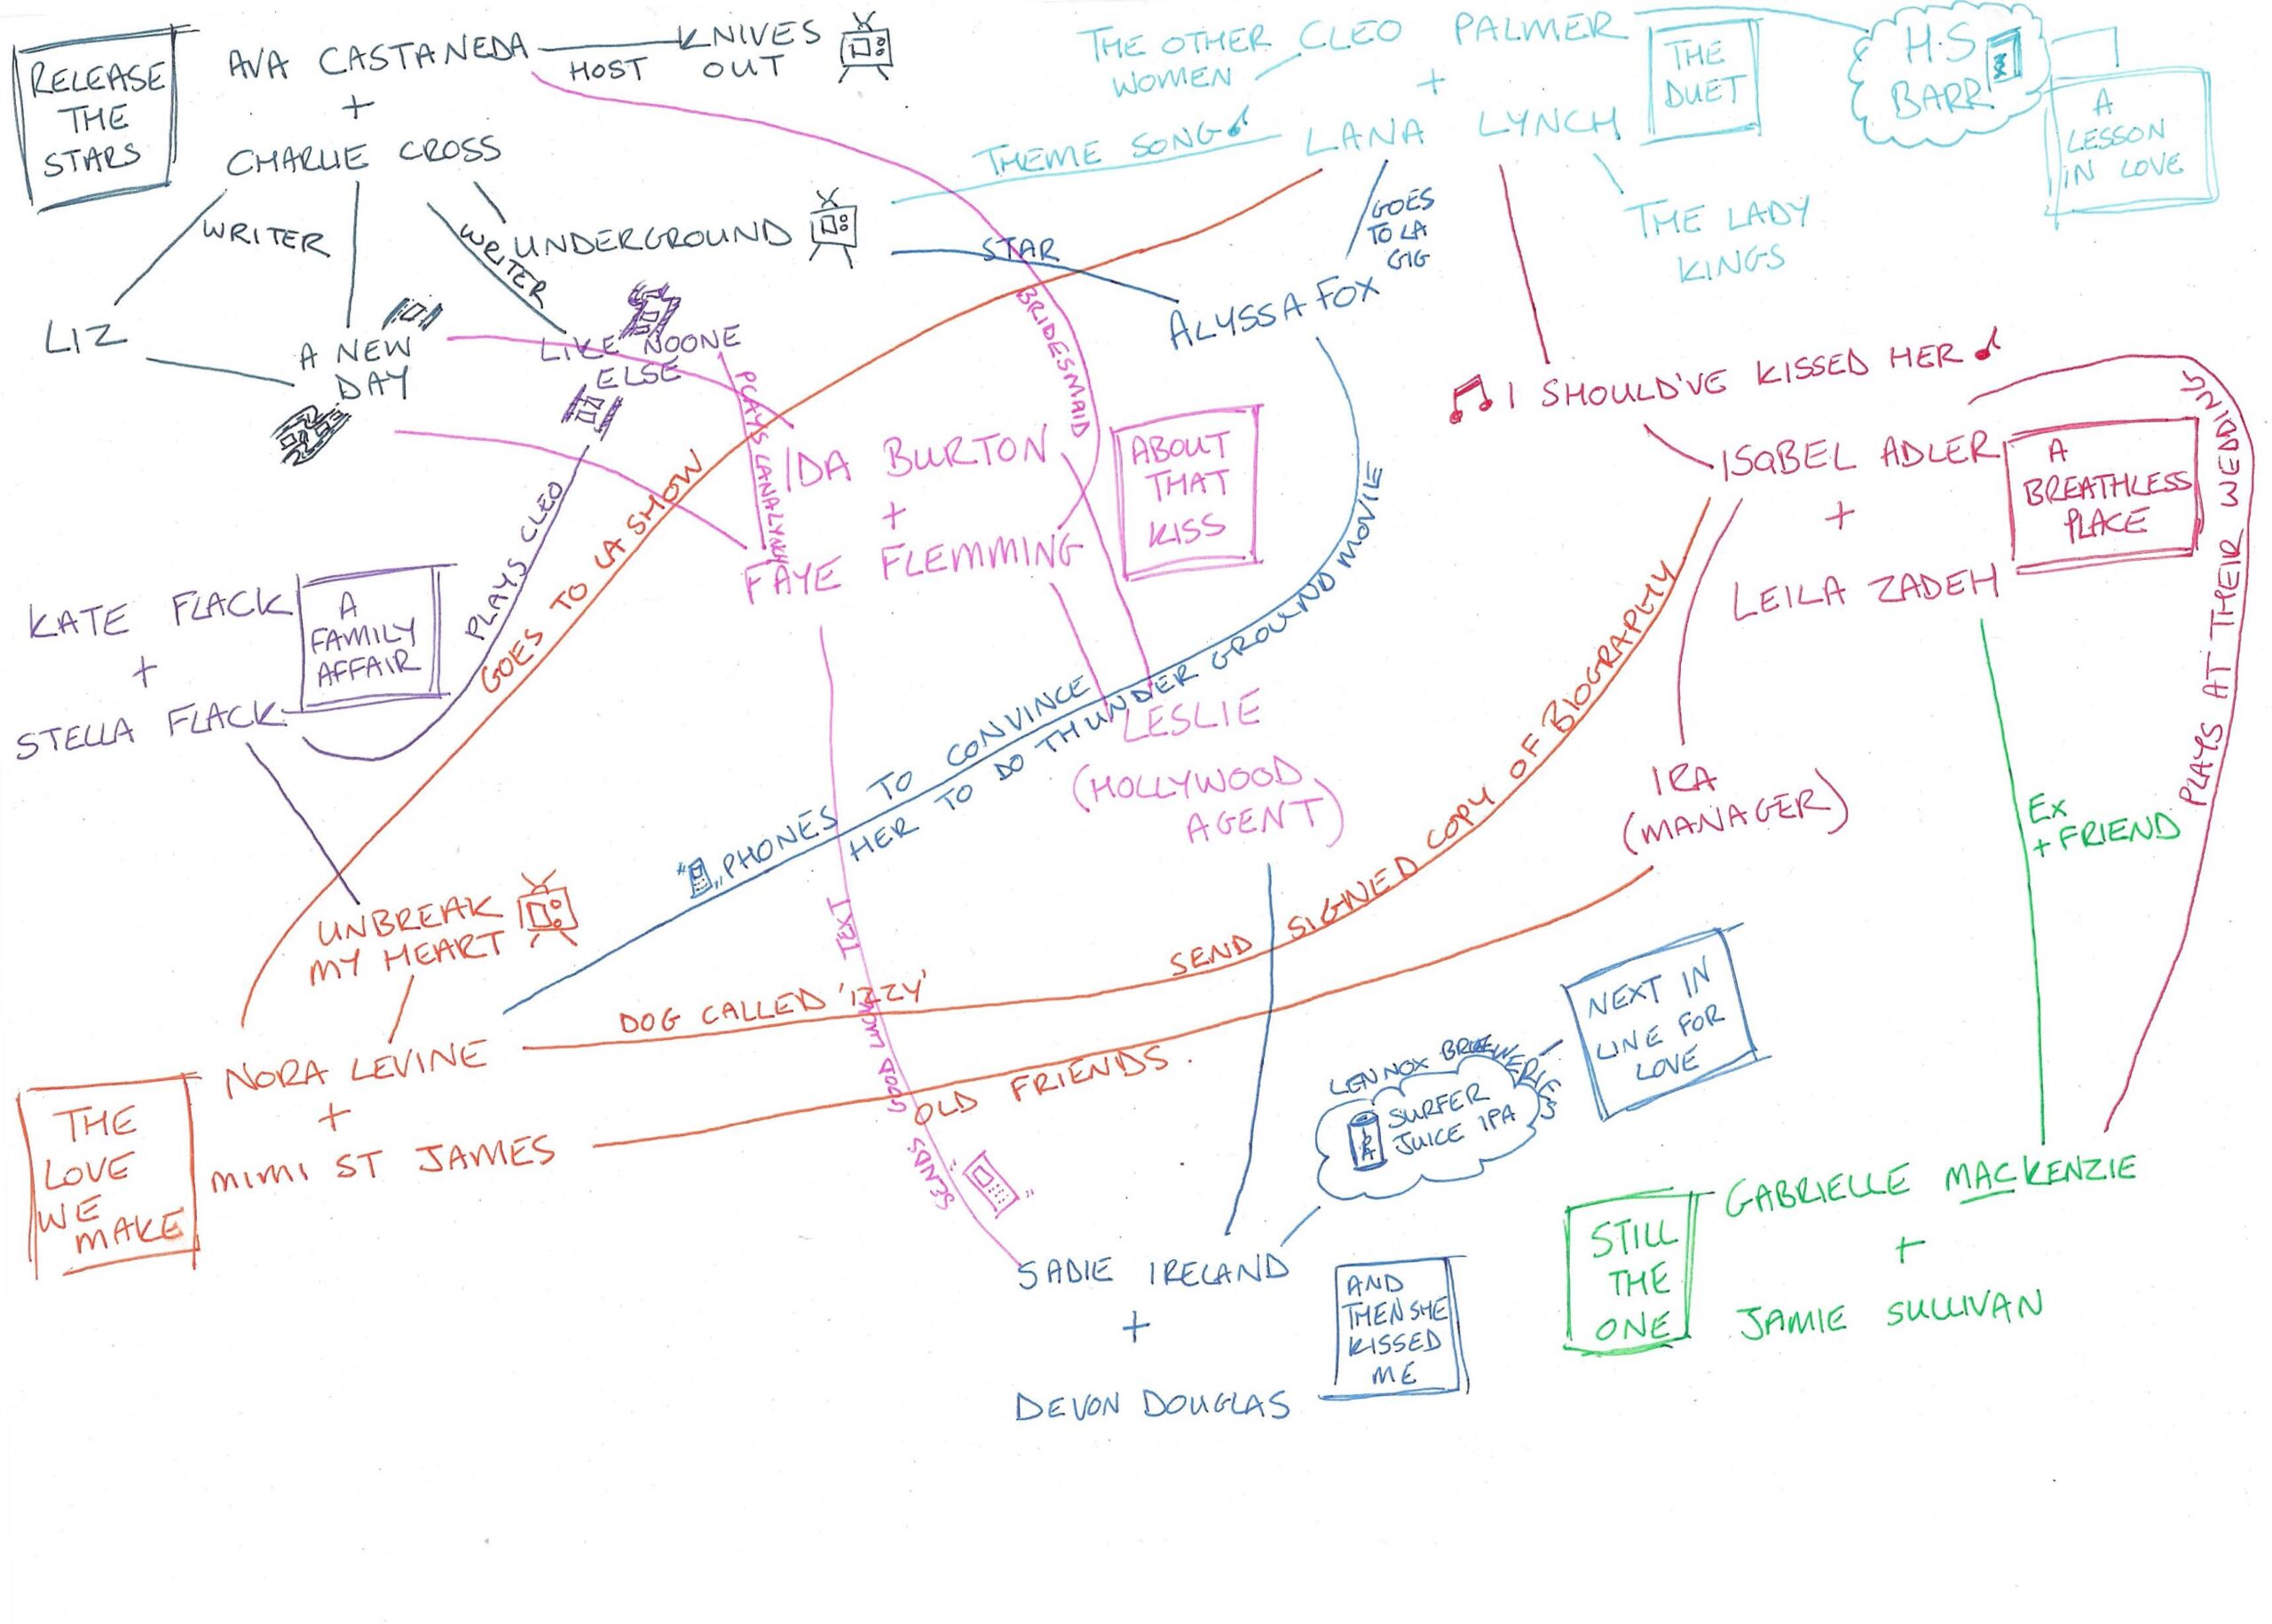 RELEASE
THE
STARS
AVA CASTANEDA
HOST
KNIVES
OUT
+
CHARLIE CROSS
WRITER
WRITER
UNDERGROUND
LIZ
A NEW
DAY
LIKE NOONE
ELSE
THEME SONG
STAR
THE OTHER
WOMEN
CLEO PALMER
+
LANA LYNCH
THE
DUET
H.S
BARR
A
LESSON
IN LOVE
THE LADY
KINGS
GOES
TO LA
GIG
ALYSSA FOX
BRIDESMAID
PLAYS LANA LYNCH
IDA BURTON
+
FAYE FLEMMING
ABOUT
THAT
KISS
I SHOULD'VE KISSED HER
ISABEL ADLER
+
LEILA ZADEH
A
BREATHLESS
PLACE
PLAYS AT THEIR WEDDING
KATE FLACK
+
STELLA FLACK
A
FAMILY
AFFAIR
PLAYS CLEO
GOES TO LA SHOW
PHONES TO CONVINCE
HER TO DO THUNDER GROUND MOVIE
LESLIE
(HOLLYWOOD
AGENT)
IRA
(MANAGER)
EX
+ FRIEND
UNBREAK
MY HEART
DOG CALLED 'IZZY'
SEND SIGNED COPY OF BIOGRAPHY
OLD FRIENDS.
SENDS GOOD MOJO TEXT
NORA LEVINE
+
MIMI ST JAMES
THE
LOVE
WE
MAKE
LENNOX BREWERIES
SURFER
JUICE IPA
IPA
NEXT IN
LINE FOR
LOVE
SADIE IRELAND
+
DEVON DOUGLAS
AND
THEN SHE
KISSED
ME
STILL
THE
ONE
GABRIELLE MACKENZIE
+
JAMIE SULLIVAN